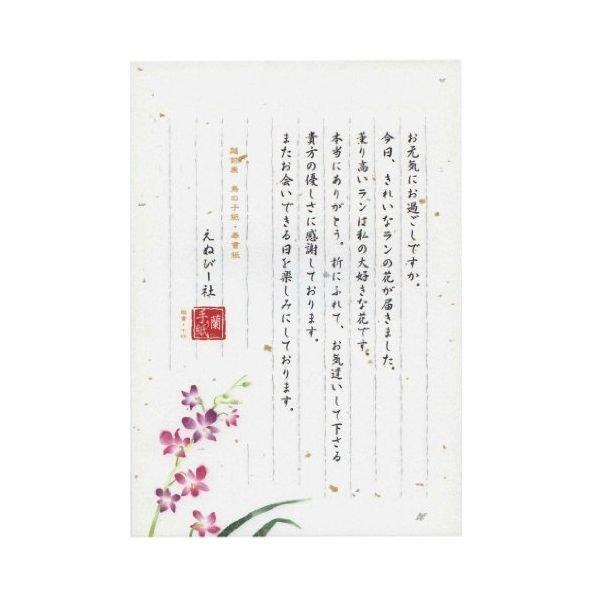 お元気にお過ごしですか。
今日、きれいなランの花が届きました。
薫り高いランは私の大好きな花です。
本当にありがとう。折にふれて、お気遣いして下さる
貴方の優しさに感謝しております。
またお会いできる日を楽しみにしております。
越前産 鳥の子紙・奉書紙
えぬびー社
蘭
手紙